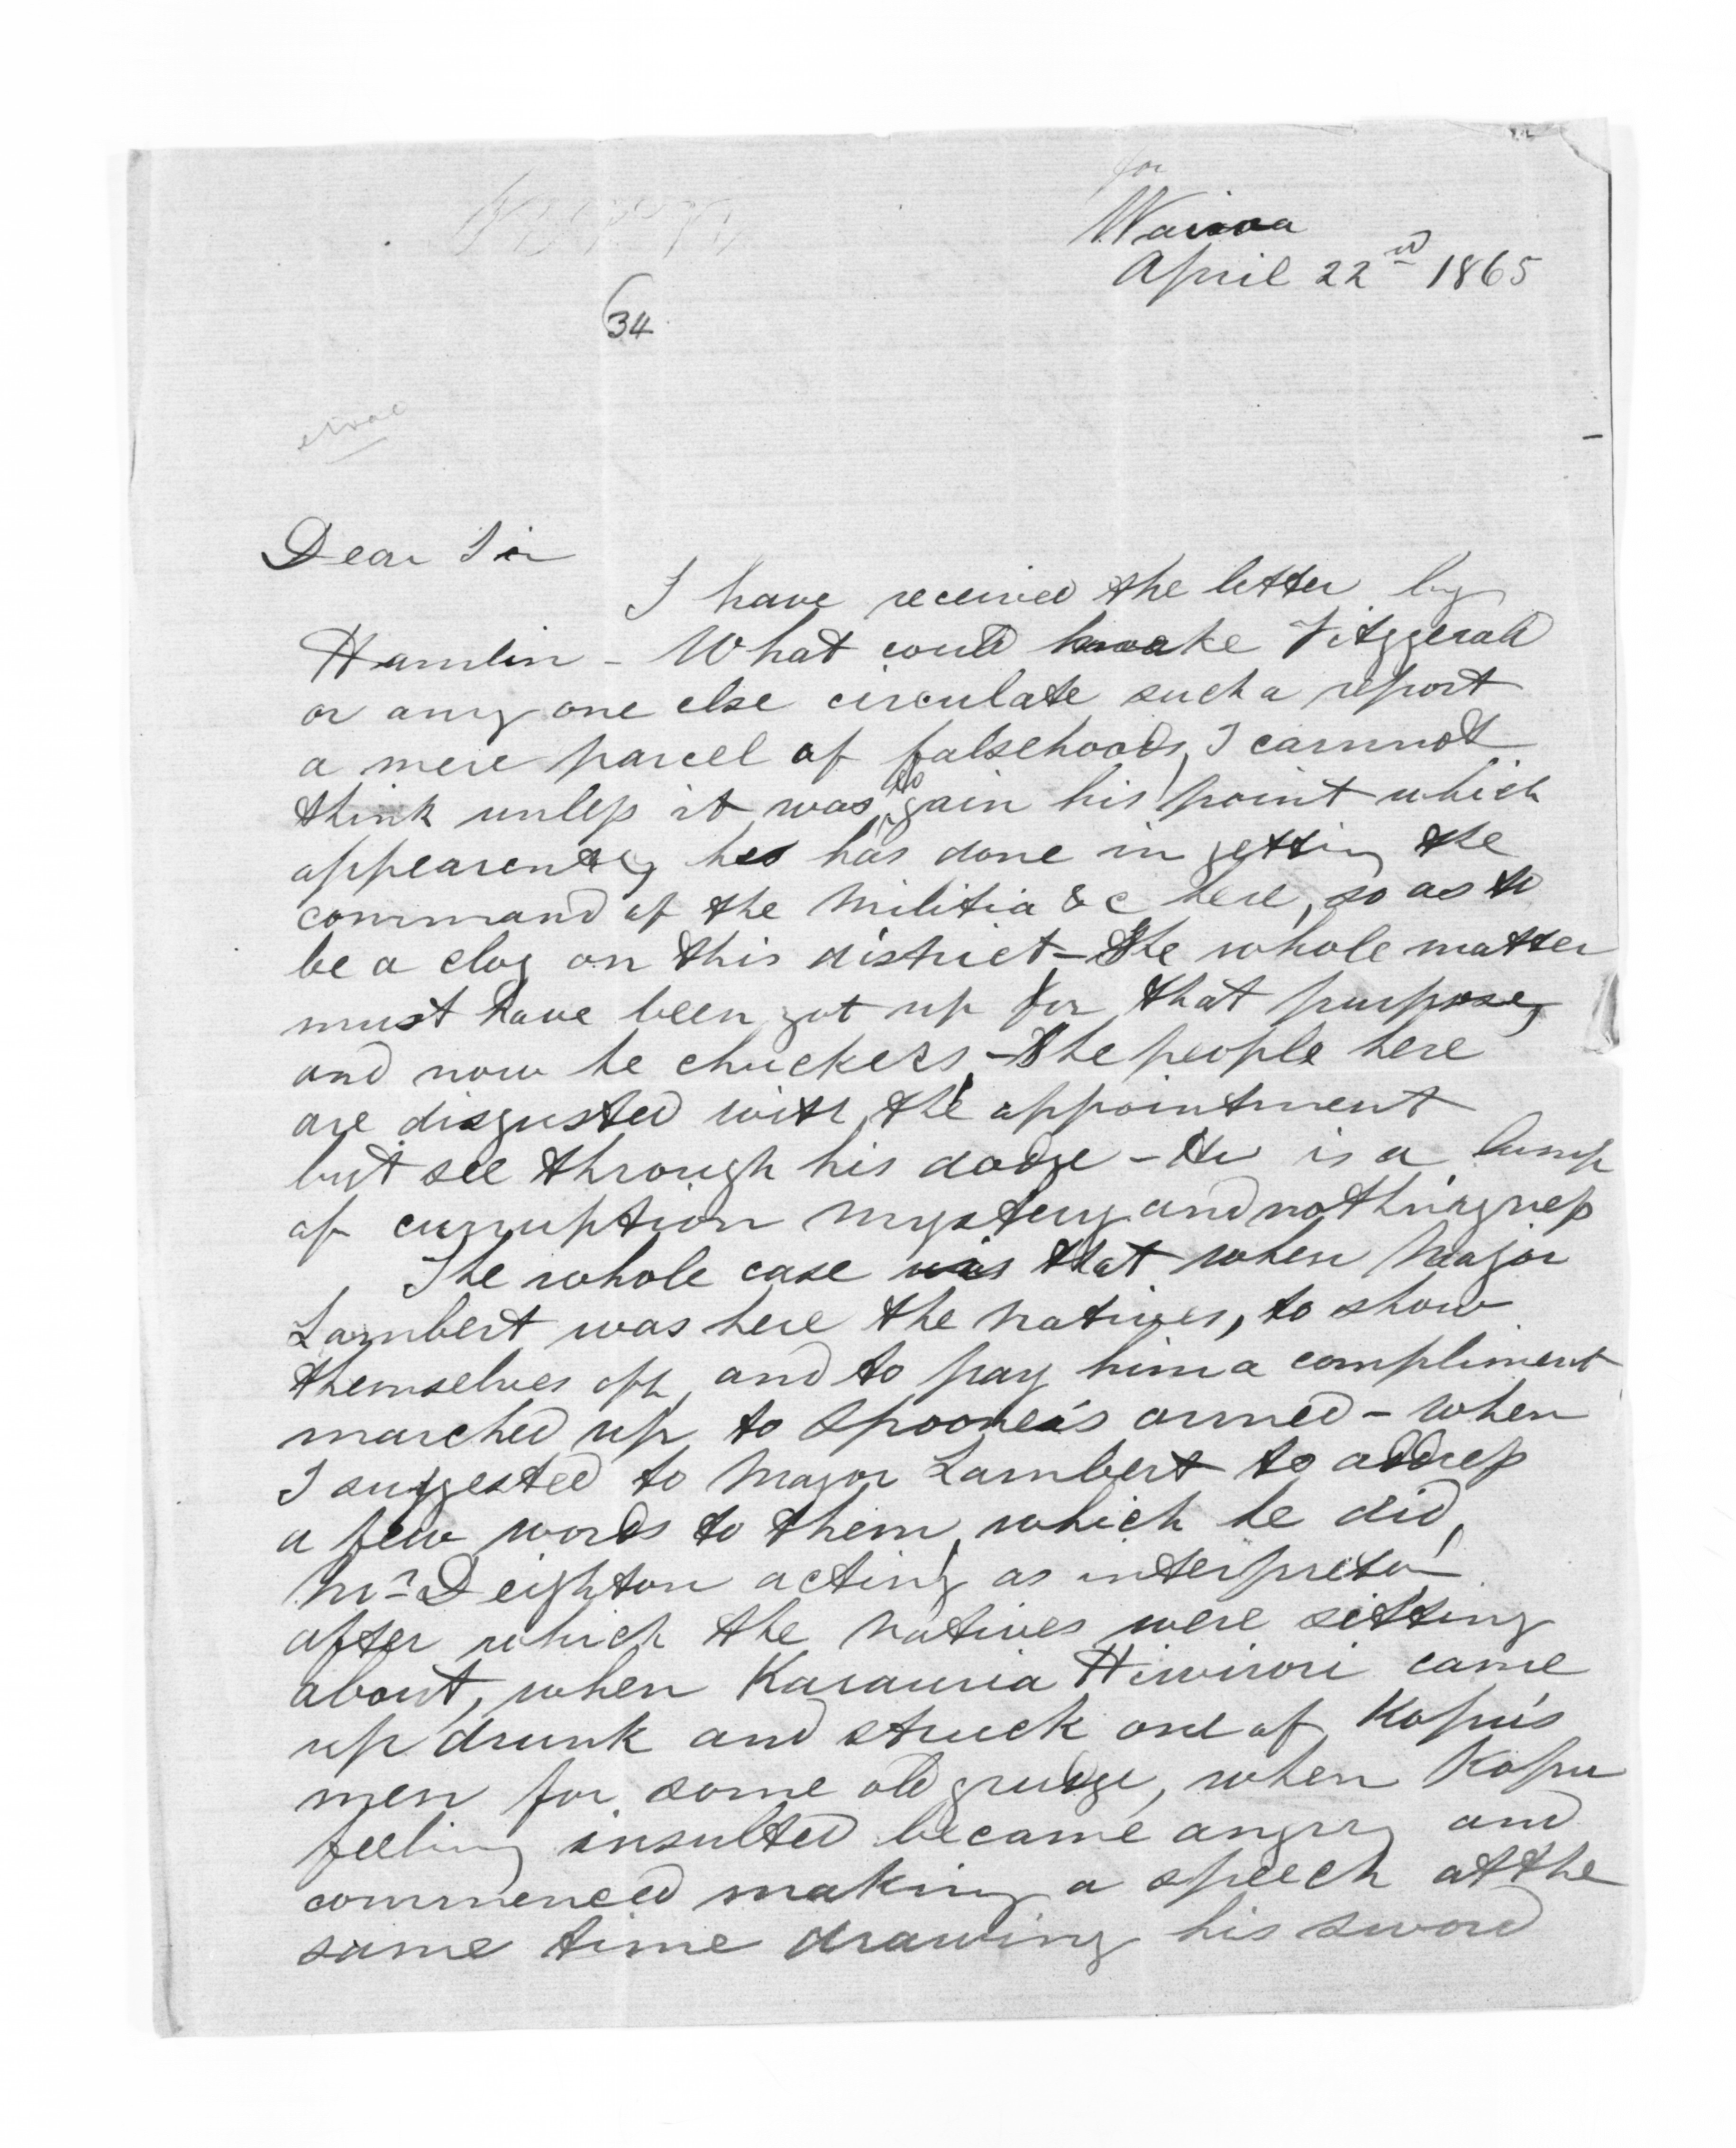 Wairoa
April 22nd 1865
34
Dear Sir
I have received the letter by
Hamlin - What could make Fitzgerald
or any one else circulate such a report
a mere parcel of falsehoods, I cannot
think unless it was to gain his point which
appearently he has done in getting the
command of the Militia &c here, so as to
be a clog on this district - The whole matter
must have been got up for that purpose,
and now he chuckels, - The people here
are disgusted with the appointment
but see through his dodge - He is a lump
of curruption mystery and nothingness
The whole case was that when Major
Lambert was here the natives, to show
themselves off, and to pay him a compliment
marched up to Spooner's armed - when
I suggested to Major Lambert to address
a few words to them, which he did,
Mr Deighton acting as interpreter
after which the natives were sitting
about, when Karauria Hiwirori came
up drunk and struck one of Kopu's
men for some old grudge, when Kopu
feeling insulted became angry and
commenced making a speech at the
same time drawing his sword